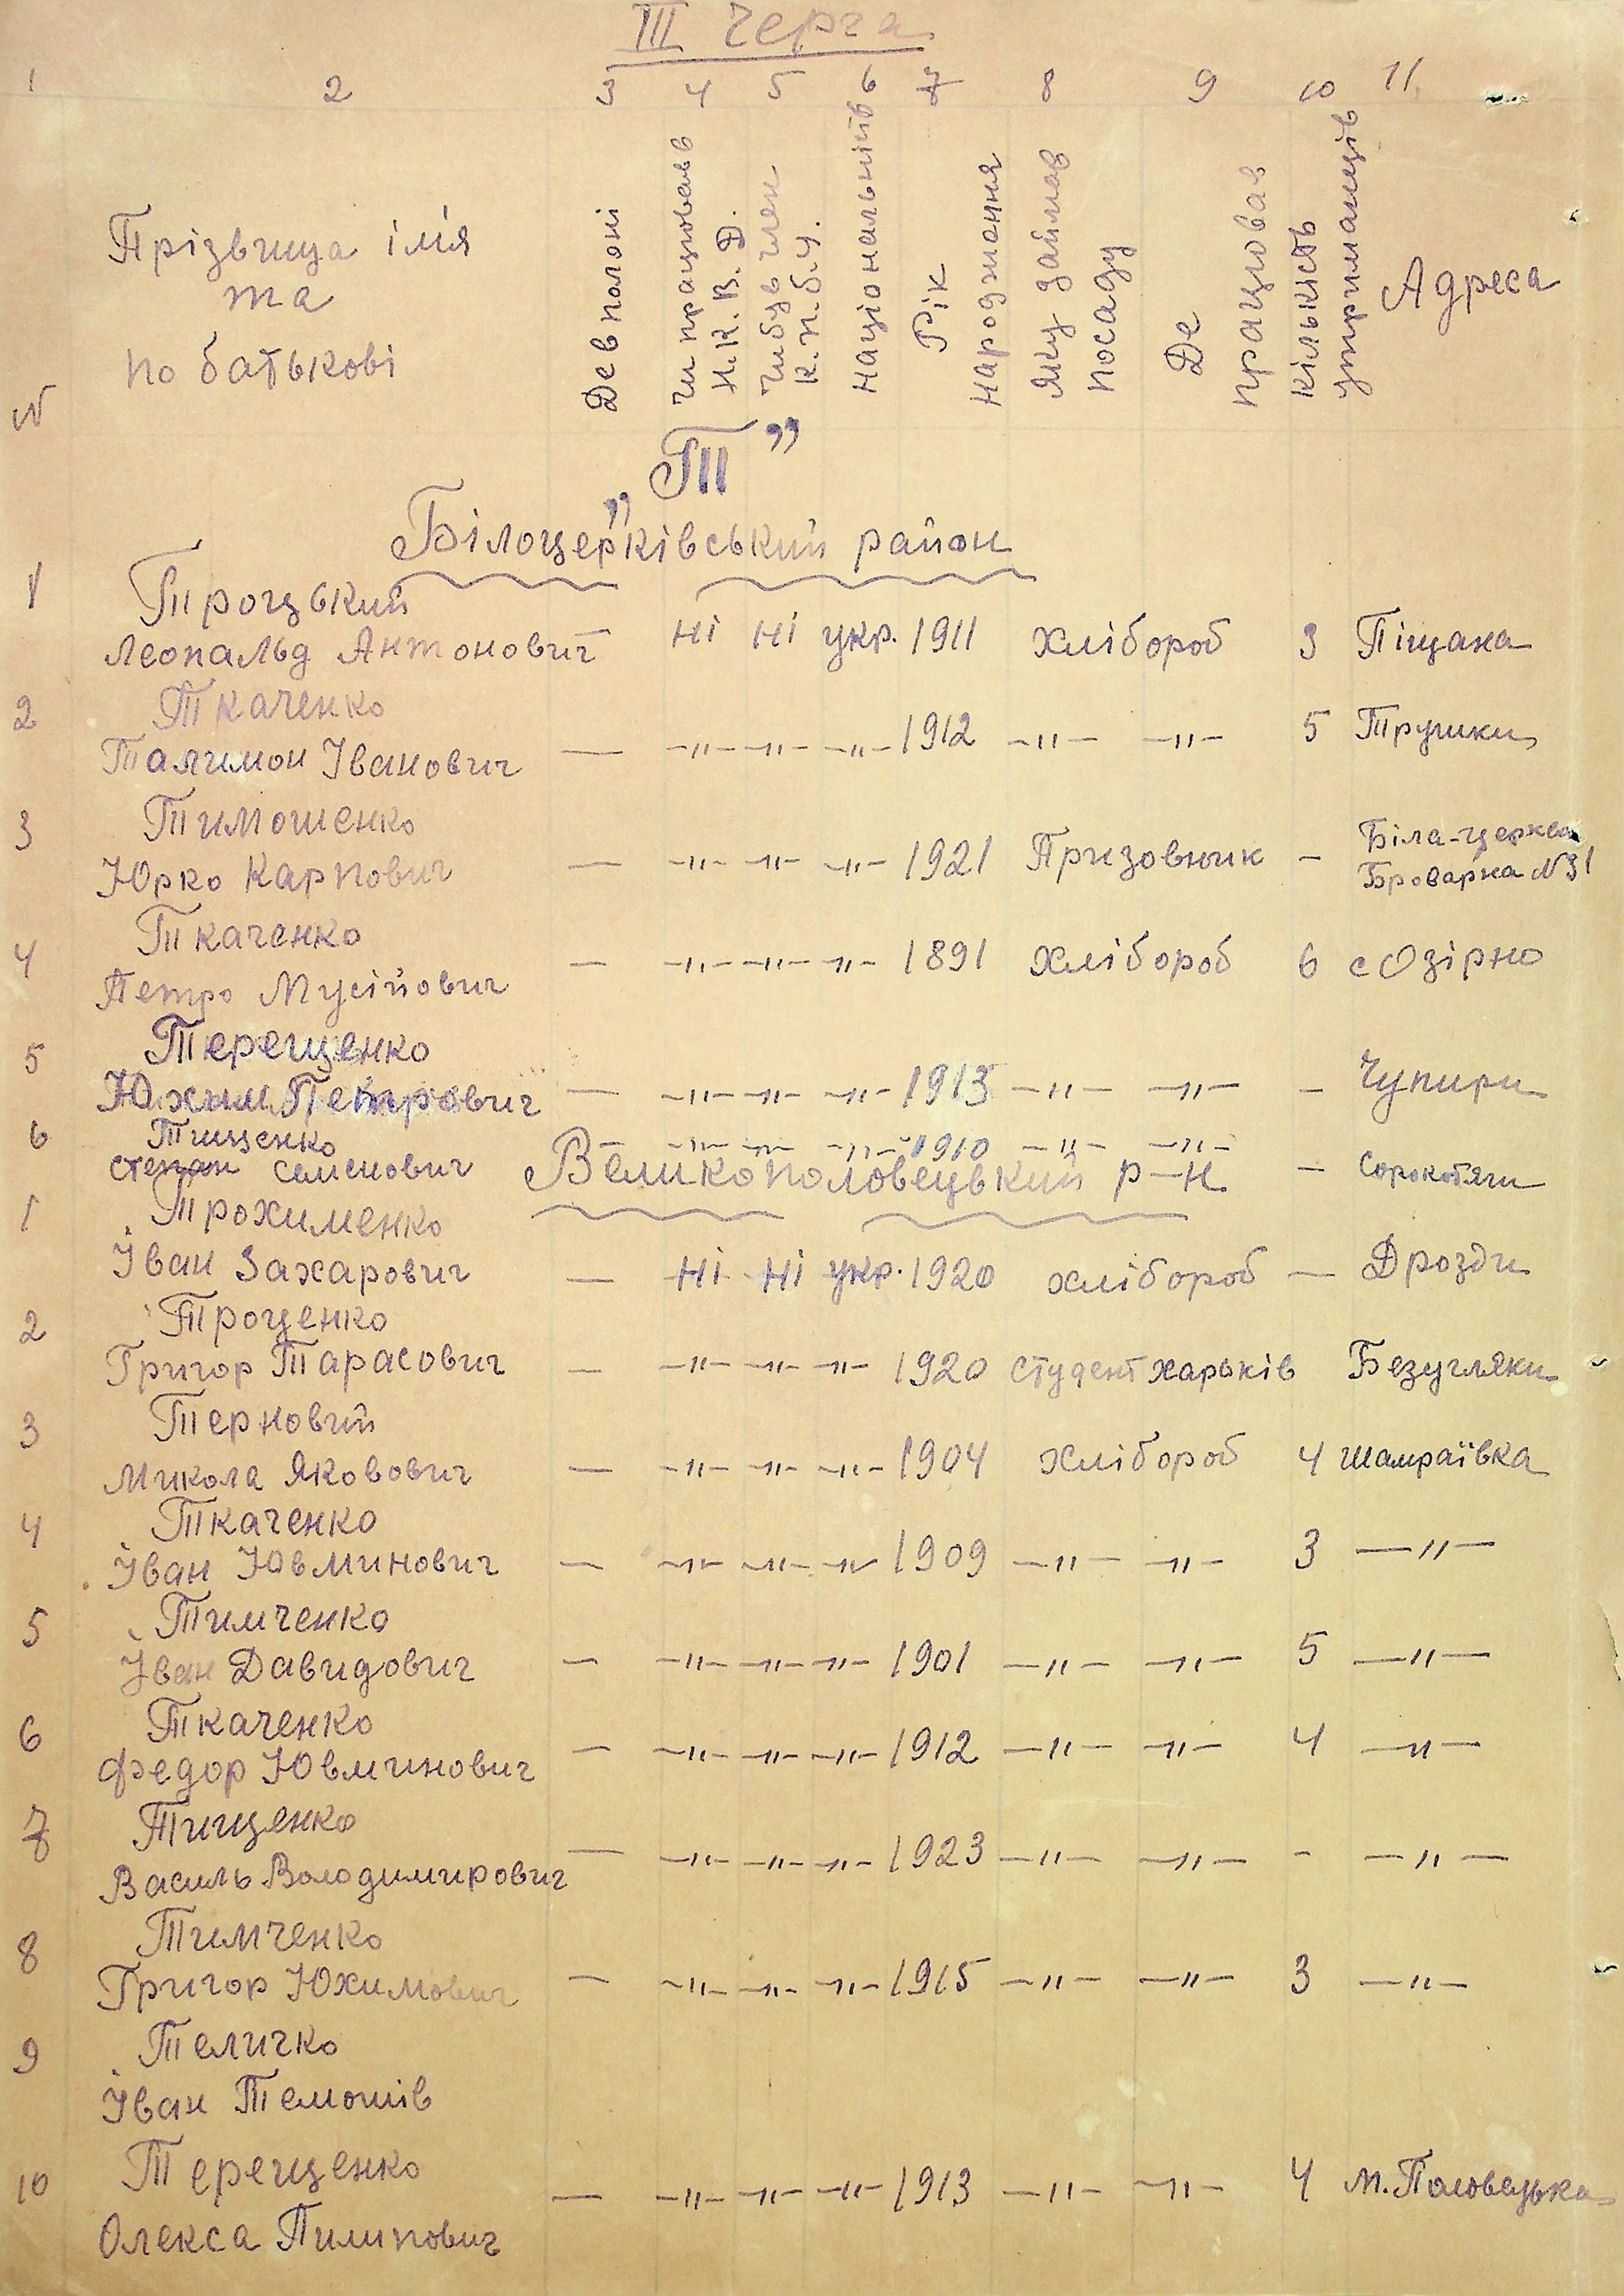 III Черга
1 2 3 4 5 6 7 8 9 10 11
N
Прізвища імія
та
по батькові
Де в полоні
Чи працював в
Н.К.В.Д.
Чи був член
К.П.б.У.
Національність
Рік
Народження
Яку займав
посаду
Де
працював
кількість
утриманців
Адреса
„Т”
Білоцерківський район
1 Троцький
Леопальд Антонович — ні ні укр. 1911 хлібороб 3 Піщана
2 Ткаченко
Талимон Іванович — —"— —"— —"— 1912 —"— —"— 5 Трушки
3 Тимошенко
Юрко Карпович — —"— —"— —"— 1921 Призовник — Біла-церква
Броварна N31
4 Ткаченко
Петро Мусійович — —"— —"— —"— 1891 хлібороб 6 с Озірно
5 Терещенко
Юхим Петрович — —"— —"— —"— 1913 —"— —"— — Чупири
6 Тищенко
Степан Семенович — —"— —"— —"— 1910 —"— —"— — Сорокотяги
Великополовецький р-н
1 Трохименко
Іван Захарович — ні ні укр. 1920 хлібороб — Дрозди
2 Троценко
Григор Тарасович — —"— —"— —"— 1920 студент харьків Безугляки
3 Терновий
Микола Яковович — —"— —"— —"— 1904 хлібороб 4 Шамраївка
4 Ткаченко
Іван Ювминович — —"— —"— —"— 1909 —"— —"— 3 —"—
5 Тимченко
Іван Давидович — —"— —"— —"— 1901 —"— —"— 5 —"—
6 Ткаченко
Федор Ювминович — —"— —"— —"— 1912 —"— —"— 4 —"—
7 Тищенко
Василь Володимирович — —"— —"— —"— 1923 —"— —"— - —"—
8 Тимченко
Григор Юхимович — —"— —"— —"— 1915 —"— —"— 3 —"—
9 Теличко
Іван Темошів
10 Терещенко
Олекса Пилипович — —"— —"— —"— 1913 —"— —"— 4 М.Половецька